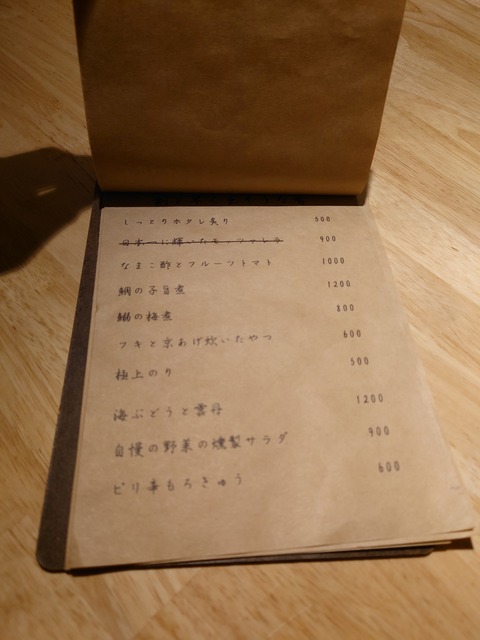 しっとりホタレ炙り 500
日本一に輝いたモッツァレラ 900
なまこ酢とフルーツトマト 1000
鯛の子旨煮 1200
鰯の梅煮 800
フキと京あげ炊いたやつ 600
極上のり 500
海ぶどうと雲丹 1200
自慢の野菜の燻製サラダ 900
ピリ辛もろきゅう 600